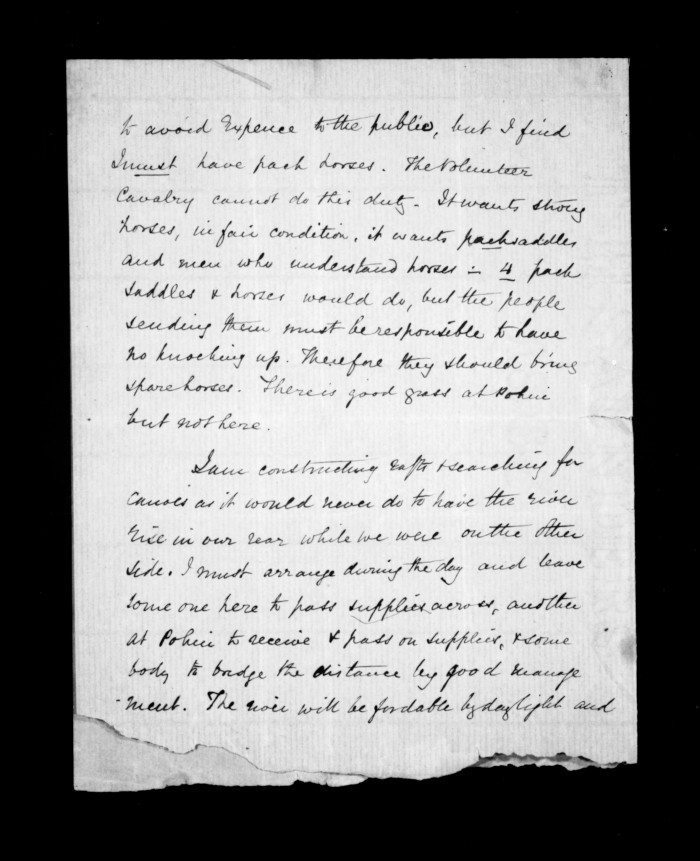 to avoid Expence to the public, but I find
I must have pack horses. The Volunteer
Cavalry cannot do this duty. It wants strong
horses, in fair condition, it wants packsaddles
and men who understand horses - 4 pack
saddles & horses would do, but the people
sending them must be responsible to have
no knocking up. Therefore they should bring
spare horses. There is good grass at Pohui
but not here.
I am constructing rafts & searching for
canoes as it would never do to have the river
rise in our rear while we were on the other
side. I must arrange during the day and leave
some one here to pass supplies across, another
at Pohui to receive & pass on supplies, & some
body to bridge the distance by good manage
-ment. The river will be fordable by daylight and